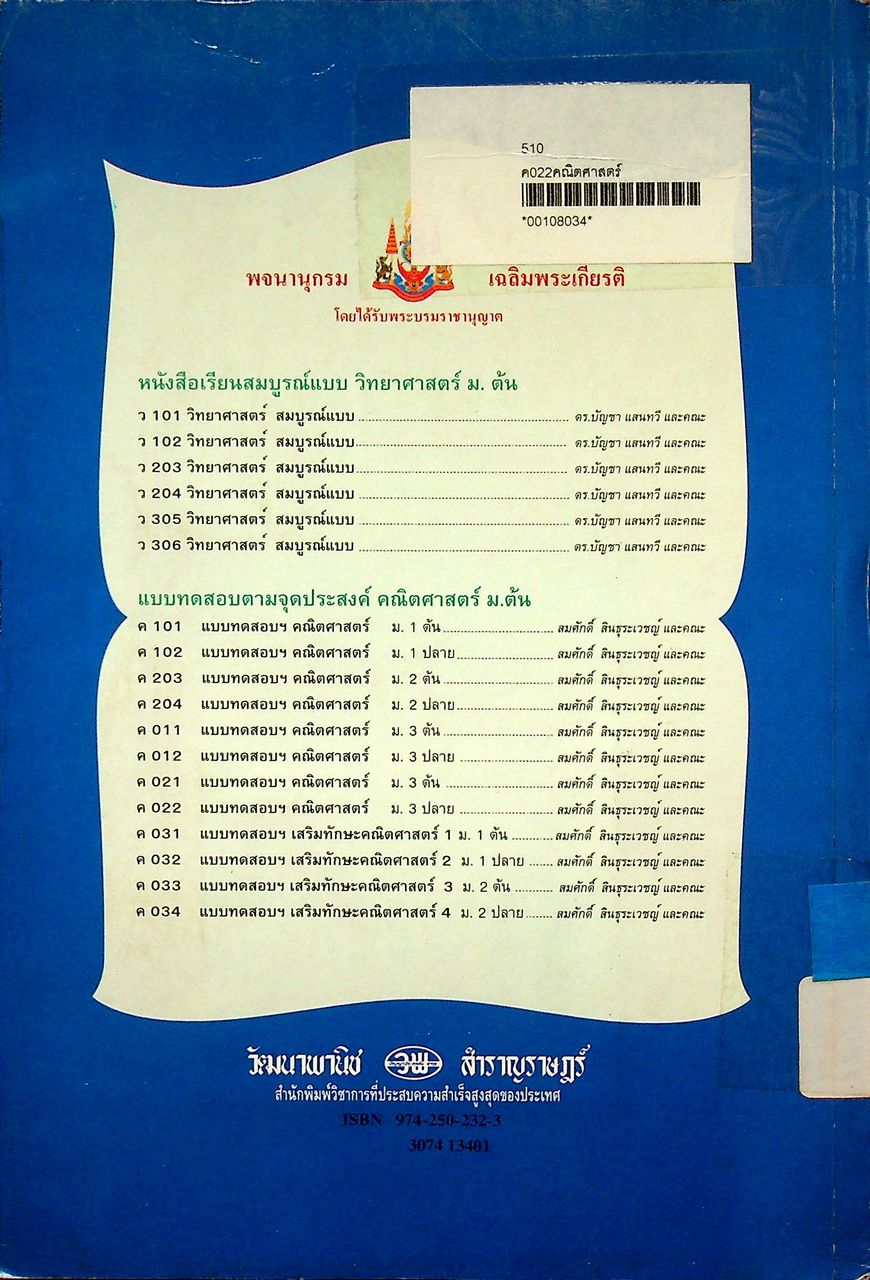 510
ค022คณิตศาสตร์
*00108034*
พจนานุกรม เฉลิมพระเกียรติ
โดยได้รับพระบรมราชานุญาต
หนังสือเรียนสมบูรณ์แบบ วิทยาศาสตร์ ม. ต้น
ว 101 วิทยาศาสตร์ สมบูรณ์แบบ ........ ดร.บัญชา แสนทวี และคณะ
ว 102 วิทยาศาสตร์ สมบูรณ์แบบ ........ ดร.บัญชา แสนทวี และคณะ
ว 203 วิทยาศาสตร์ สมบูรณ์แบบ ........ ดร.บัญชา แสนทวี และคณะ
ว 204 วิทยาศาสตร์ สมบูรณ์แบบ ........ ดร.บัญชา แสนทวี และคณะ
ว 305 วิทยาศาสตร์ สมบูรณ์แบบ ........ ดร.บัญชา แสนทวี และคณะ
ว 306 วิทยาศาสตร์ สมบูรณ์แบบ ........ ดร.บัญชา แสนทวี และคณะ
แบบทดสอบตามจุดประสงค์ คณิตศาสตร์ ม.ต้น
ค 101 แบบทดสอบฯ คณิตศาสตร์ ม. 1 ต้น ........ สมศักดิ์ สินธุระเวชญ์ และคณะ
ค 102 แบบทดสอบฯ คณิตศาสตร์ ม. 1 ปลาย ........ สมศักดิ์ สินธุระเวชญ์ และคณะ
ค 203 แบบทดสอบฯ คณิตศาสตร์ ม. 2 ต้น ........ สมศักดิ์ สินธุระเวชญ์ และคณะ
ค 204 แบบทดสอบฯ คณิตศาสตร์ ม. 2 ปลาย ........ สมศักดิ์ สินธุระเวชญ์ และคณะ
ค 011 แบบทดสอบฯ คณิตศาสตร์ ม. 3 ต้น ........ สมศักดิ์ สินธุระเวชญ์ และคณะ
ค 012 แบบทดสอบฯ คณิตศาสตร์ ม. 3 ปลาย ........ สมศักดิ์ สินธุระเวชญ์ และคณะ
ค 021 แบบทดสอบฯ คณิตศาสตร์ ม. 3 ต้น ........ สมศักดิ์ สินธุระเวชญ์ และคณะ
ค 022 แบบทดสอบฯ คณิตศาสตร์ ม. 3 ปลาย ........ สมศักดิ์ สินธุระเวชญ์ และคณะ
ค 031 แบบทดสอบฯ เสริมทักษะคณิตศาสตร์ 1 ม. 1 ต้น ........ สมศักดิ์ สินธุระเวชญ์ และคณะ
ค 032 แบบทดสอบฯ เสริมทักษะคณิตศาสตร์ 2 ม. 1 ปลาย ........ สมศักดิ์ สินธุระเวชญ์ และคณะ
ค 033 แบบทดสอบฯ เสริมทักษะคณิตศาสตร์ 3 ม. 2 ต้น ........ สมศักดิ์ สินธุระเวชญ์ และคณะ
ค 034 แบบทดสอบฯ เสริมทักษะคณิตศาสตร์ 4 ม. 2 ปลาย ........ สมศักดิ์ สินธุระเวชญ์ และคณะ
วัฒนาพานิช วพ สำราญราษฎร์
สำนักพิมพ์วิชาการที่ประสบความสำเร็จสูงสุดของประเทศ
ISBN 974-250-232-3
3074 13401